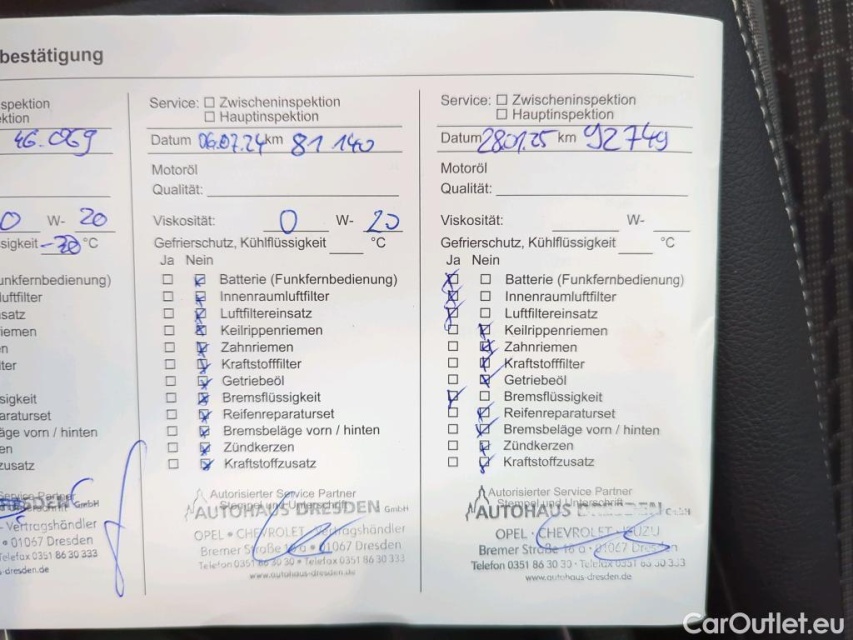 bestätigung
spektion
ktion
46.069
W- 20
sigkeit -30 °C
unkfernbedienung)
luftfilter
satz
iemen
en
ter
sigkeit
araturset
äge vorn / hinten
en
zusatz
Service Partner
DRESDEN GmbH
- Vertragshändler
• 01067 Dresden
Telefax 0351 86 30 333
s-dresden.de
Service: Zwischeninspektion
Hauptinspektion
Datum 06.07.24 km 81 140
Motoröl
Qualität:
Viskosität: 0 W- 20
Gefrierschutz, Kühlflüssigkeit °C
Ja Nein
Batterie (Funkfernbedienung)
Innenraumluftfilter
Luftfiltereinsatz
Keilrippenriemen
Zahnriemen
Kraftstofffilter
Getriebeöl
Bremsflüssigkeit
Reifenreparaturset
Bremsbeläge vorn / hinten
Zündkerzen
Kraftstoffzusatz
Autorisierter Service Partner
Stempel und Unterschrift
AUTOHAUS DRESDEN GmbH
OPEL • CHEVROLET Vertragshändler
Bremer Straße 16 a • 01067 Dresden
Telefon 0351 86 30 30 • Telefax 0351 86 30 333
www.autohaus-dresden.de
Service: Zwischeninspektion
Hauptinspektion
Datum 28.01.25 km 92749
Motoröl
Qualität:
Viskosität: W-
Gefrierschutz, Kühlflüssigkeit °C
Ja Nein
Batterie (Funkfernbedienung)
Innenraumluftfilter
Luftfiltereinsatz
Keilrippenriemen
Zahnriemen
Kraftstofffilter
Getriebeöl
Bremsflüssigkeit
Reifenreparaturset
Bremsbeläge vorn / hinten
Zündkerzen
Kraftstoffzusatz
Autorisierter Service Partner
Stempel und Unterschrift
AUTOHAUS DRESDEN GmbH
OPEL • CHEVROLET • ISUZU
Bremer Straße 16 a • 01067 Dresden
Telefon 0351 86 30 30 • Telefax 0351 86 30 333
www.autohaus-dresden.de
CarOutlet.eu